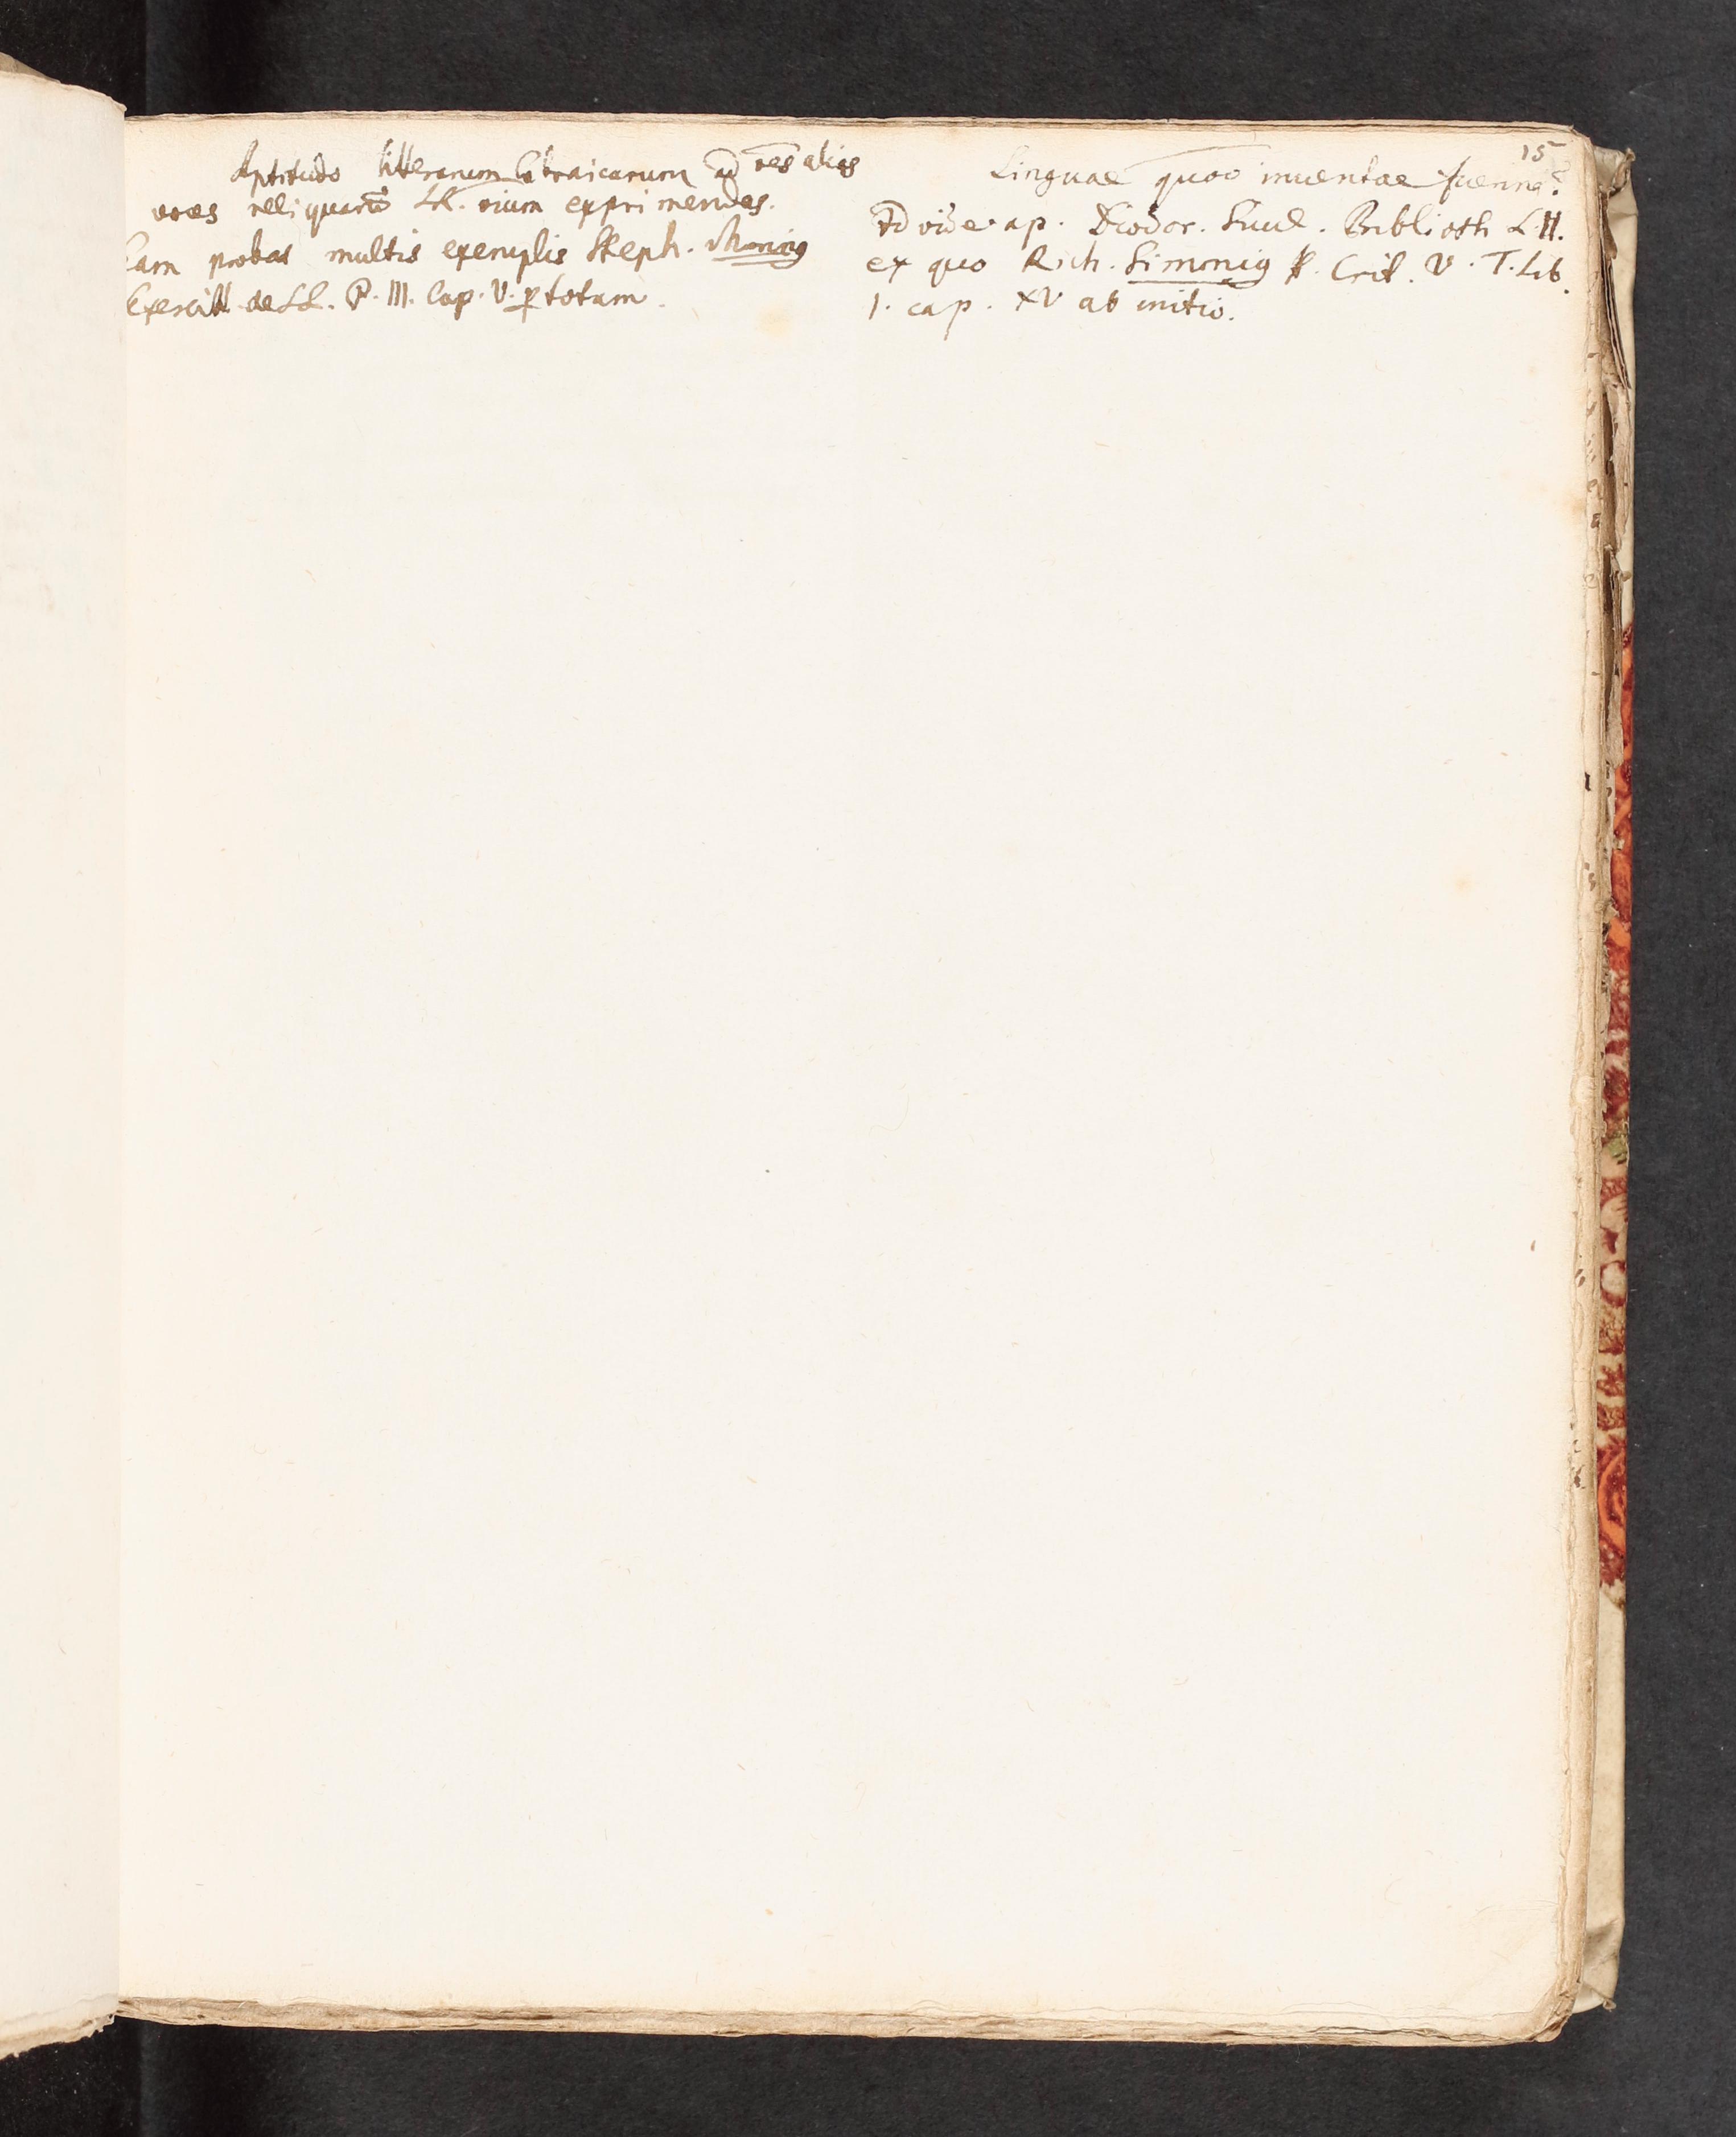 15
Aptitudo litterarum Ebraicarum ad res alias
voces reliquarū LL. rium exprimendas.
Eam probat multis exemplis Steph. Morinus
Exercitt. de LL. P. III. Cap. V. p totum.
Linguae quōō inventae fuerint?
Id vide ap. Diodor. Sicul. Biblioth L. II.
ex quo Rich. Simonius H. Crit. V. T. Lib.
1. cap. XV ab initio.